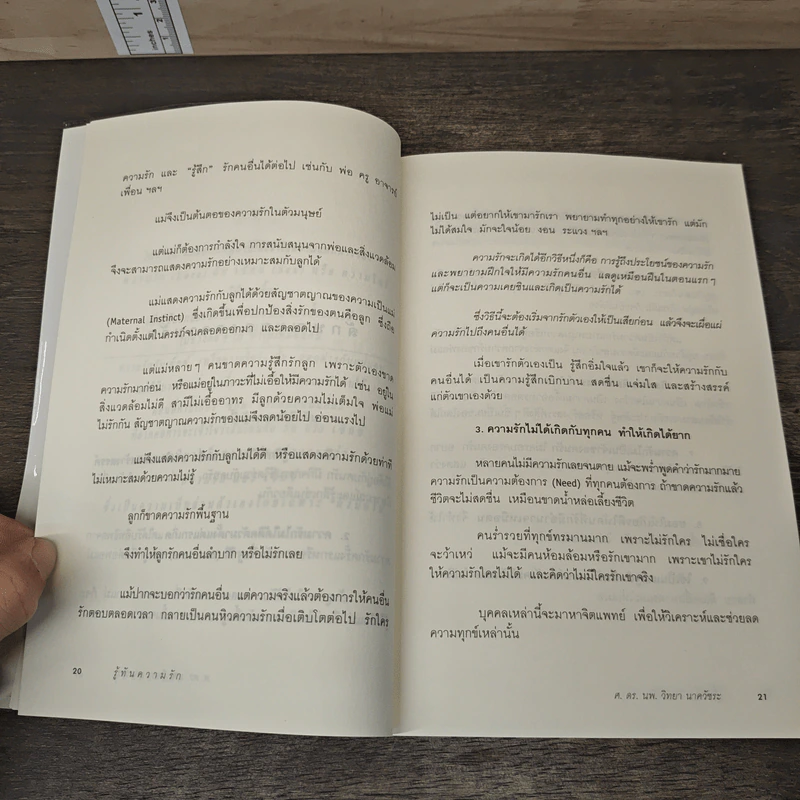 1
2
3
inches
ความรัก และ "รู้สึก" รักคนอื่นได้ต่อไป เช่นกับ พ่อ ครู อาจารย์
เพื่อน ฯลฯ
แม่จึงเป็นต้นตอของความรักในตัวมนุษย์
แต่แม่ก็ต้องการกำลังใจ การสนับสนุนจากพ่อและสิ่งแวดล้อม
จึงจะสามารถแสดงความรักอย่างเหมาะสมกับลูกได้
แม่แสดงความรักกับลูกได้ด้วยสัญชาตญาณของความเป็นแม่
(Maternal Instinct) ซึ่งเกิดขึ้นเพื่อปกป้องสิ่งรักของตนคือลูก ซึ่งถือ
กำเนิดตั้งแต่ในครรภ์จนคลอดออกมา และตลอดไป
แต่แม่หลายๆ คนขาดความรู้สึกรักลูก เพราะตัวเองขาด
ความรักมาก่อน หรือแม่อยู่ในภาวะที่ไม่เอื้อให้มีความรักได้ เช่น อยู่ใน
สิ่งแวดล้อมไม่ดี สามีไม่เอื้ออาทร มีลูกด้วยความไม่เต็มใจ พ่อแม่
ไม่รักกัน สัญชาตญาณความรักของแม่จึงลดน้อยไป อ่อนแรงไป
แม่จึงแสดงความรักกับลูกไม่ได้ดี หรือแสดงความรักด้วยท่าที
ไม่เหมาะสมด้วยความไม่รู้
ลูกก็ขาดความรักพื้นฐาน
จึงทำให้ลูกรักคนอื่นลำบาก หรือไม่รักเลย
แม้ปากจะบอกว่ารักคนอื่น แต่ความจริงแล้วต้องการให้คนอื่น
รักตอบตลอดเวลา กลายเป็นคนหิวความรักเมื่อเติบโตต่อไป รักใคร
20 รู้ทันความรัก
ไม่เป็น แต่อยากให้เขามารักเรา พยายามทำทุกอย่างให้เขารัก แต่มัก
ไม่ได้สมใจ มักจะใจน้อย งอน ระแวง ฯลฯ
ความรักจะเกิดได้อีกวิธีหนึ่งก็คือ การรู้ถึงประโยชน์ของความรัก
และพยายามฝึกใจให้มีความรักคนอื่น แลดูเหมือนฝืนในตอนแรกๆ
แต่ก็จะเป็นความเคยชินและเกิดเป็นความรักได้
ซึ่งวิธีนี้จะต้องเริ่มจากรักตัวเองให้เป็นเสียก่อน แล้วจึงจะเผื่อแผ่
ความรักไปถึงคนอื่นได้
เมื่อเขารักตัวเองเป็น รู้สึกอิ่มใจแล้ว เขาก็จะให้ความรักกับ
คนอื่นได้ เป็นความรู้สึกเบิกบาน สดชื่น แจ่มใส และสร้างสรรค์
แก่ตัวเขาเองด้วย
3. ความรักไม่ได้เกิดกับทุกคน ทำให้เกิดได้ยาก
หลายคนไม่มีความรักเลยจนตาย แม้จะพร่ำพูดคำว่ารักมากมาย
ความรักเป็นความต้องการ (Need) ที่ทุกคนต้องการ ถ้าขาดความรักแล้ว
ชีวิตจะไม่สดชื่น เหมือนขาดน้ำหล่อเลี้ยงชีวิต
คนร่ำรวยที่ทุกข์ทรมานมาก เพราะไม่รักใคร ไม่เชื่อใคร
จะว้าเหว่ แม้จะมีคนห้อมล้อมหรือรักเขามาก เพราะเขาไม่รักใคร
ให้ความรักใครไม่ได้ และคิดว่าไม่มีใครรักเขาจริง
บุคคลเหล่านี้จะมาหาจิตแพทย์ เพื่อให้วิเคราะห์และช่วยลด
ความทุกข์เหล่านั้น
ศ. ดร. นพ. วิทยา นาควัชระ 21